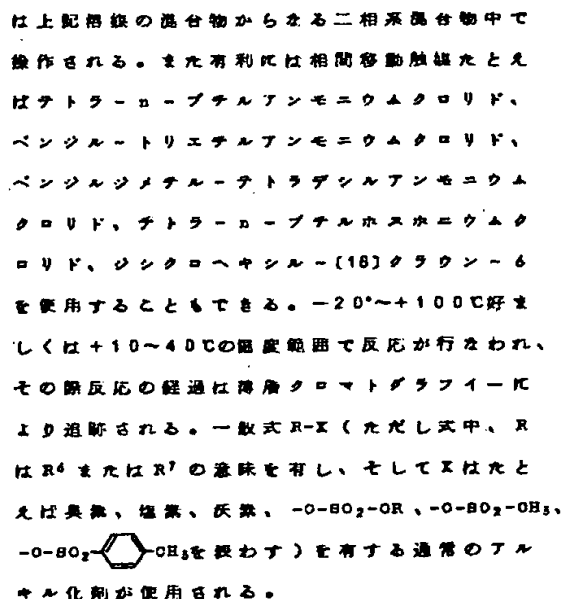 は上記溶媒の混合物からなる二相系混合物中で
操作される。また有利には相間移動触媒たとえ
ばテトラ-n-ブチルアンモニウムクロリド、
ベンジル-トリエチルアンモニウムクロリド、
ベンジルジメチル-テトラデシルアンモニウム
クロリド、テトラ-n-ブチルホスホニウムク
ロリド、ジシクロヘキシル-〔18〕クラウン-6
を使用することもできる。-20°~+100℃好ま
しくは+10~40℃の温度範囲で反応が行なわれ、
その際反応の経過は薄層クロマトグラフイーに
より追跡される。一般式R-X(ただし式中、R
はR⁶またはR⁷の意味を有し、そしてXはたと
えば臭素、塩素、沃素、-O-SO₂-OR、-O-SO₂-CH₃、
-O-SO₂-CH₃を表わす)を有する通常のアル
キル化剤が使用される。